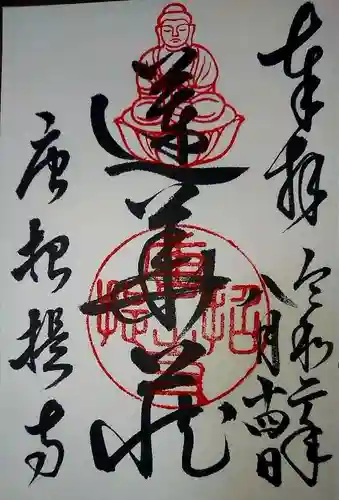 奉拝
令和二年
八月十四日
蓮華蔵
唐招提寺